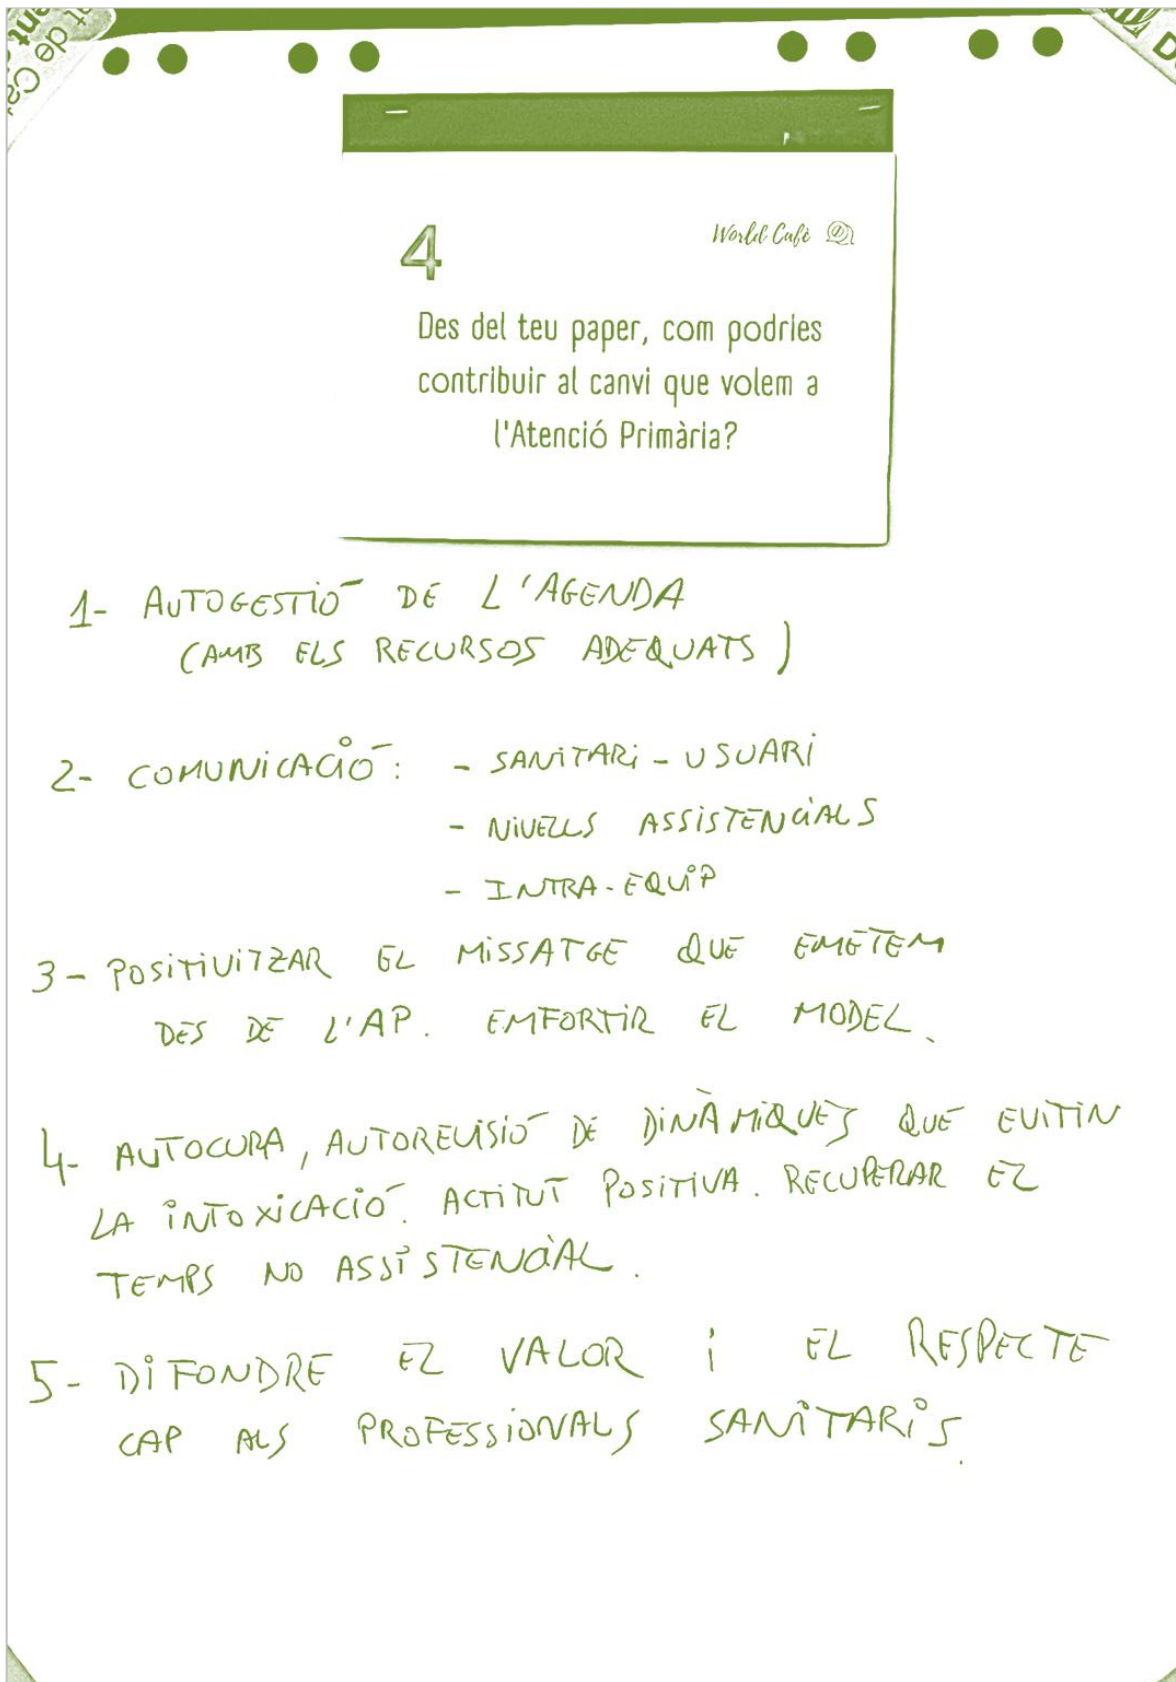 4
World Cafè
Des del teu paper, com podries
contribuir al canvi que volem a
l'Atenció Primària?
1- AUTOGESTIÓ DE L'AGENDA
(AMB ELS RECURSOS ADEQUATS)
2- COMUNICACIÓ: - SANITARI - USUARI
- NIVELLS ASSISTENCIALS
- INTRA-EQUIP
3- POSITIVITZAR EL MISSATGE QUE EMETEM
DES DE L'AP. EMFORTIR EL MODEL.
4- AUTOCURA, AUTOREVISIÓ DE DINÀMIQUES QUE EVITIN
LA INTOXICACIÓ. ACTITUT POSITIVA. RECUPERAR EL
TEMPS NO ASSISTENCIAL.
5- DIFONDRE EL VALOR i EL RESPECTE
CAP ALS PROFESSIONALS SANITARIS.